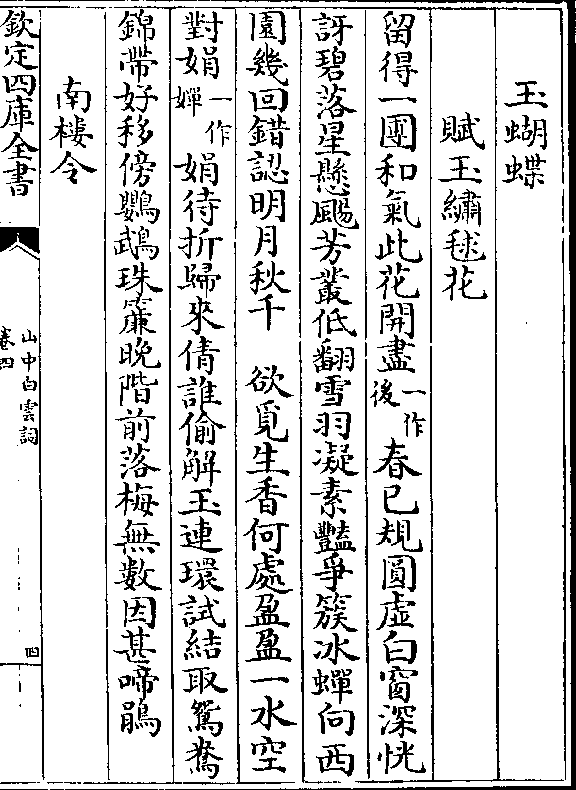 玉蝴蝶
賦玉繡毬花
留得一團和氣此花開盡一作後春已規圓虛白窗深恍
訝碧落星懸颺芳叢低翻雪羽凝素豔爭簇冰蟬向西
園幾回錯認明月秋千　欲覓生香何處盈盈一水空
對娟一作嬋娟待折歸來倩誰偷解玉連環試結取鴛鴦
錦帶好移傍鸚鵡珠簾晚階前落梅無數因甚啼鵑
南樓令
欽定四庫全書
山中白雲詞
卷四
四